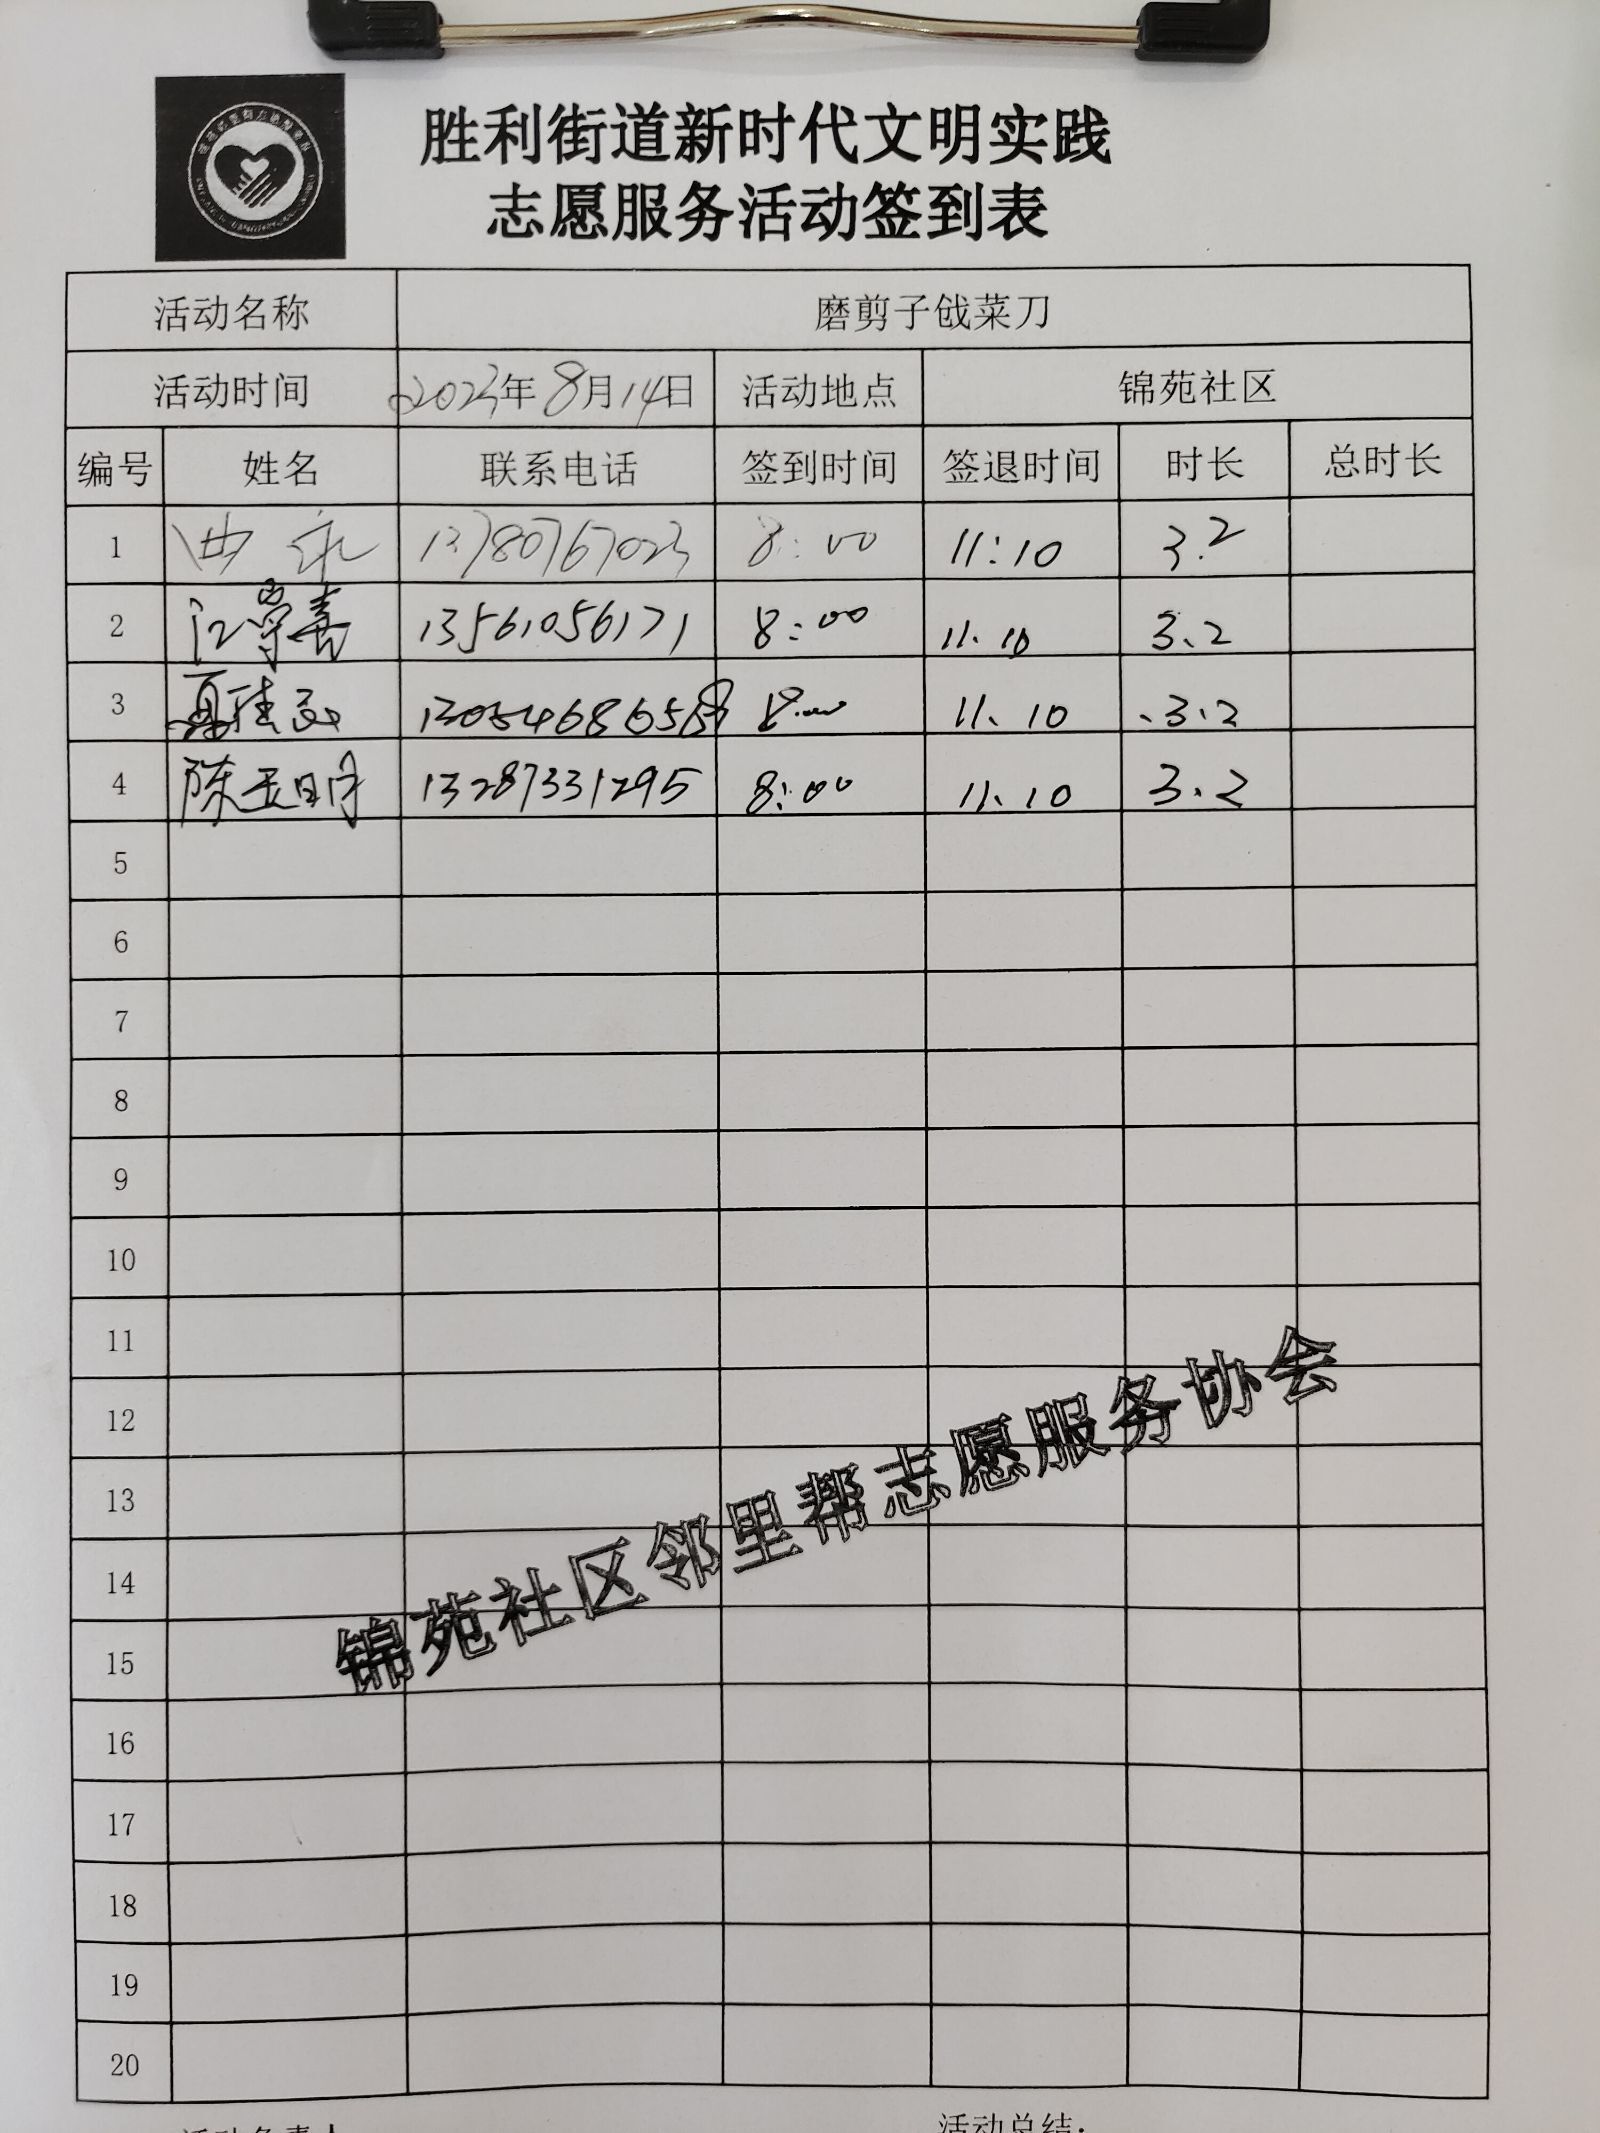 胜利街道新时代文明实践
志愿服务活动签到表
活动名称 磨剪子戗菜刀
活动时间 2023年8月14日 活动地点 锦苑社区
编号 姓名 联系电话 签到时间 签退时间 时长 总时长
1 13780767023 8:00 11:10 3.2
2 13561056171 8:00 11.10 3.2
3 8:00 11.10 3.2
4 陈玉明 13287331295 8:00 11.10 3.2
5
6
7
8
9
10
11
12
13
14
15
16
17
18
19
20
锦苑社区邻里帮志愿服务协会
活动负责人 活动总结: